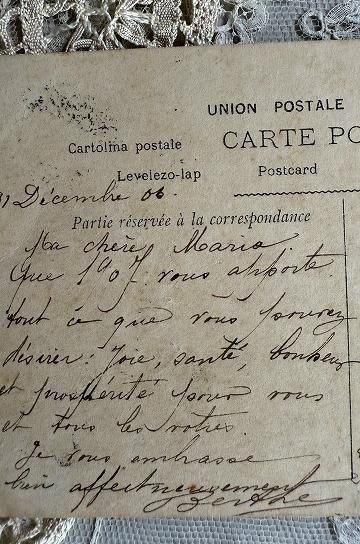 UNION POSTALE
Cartolina postale
CARTE PO
Levelezo-lap
Postcard
31 Décembre 06.
Partie réservée à la correspondance
Ma chère Maria.
Que 1907 vous apporte
tout ce que vous pouvez
désirer: Joie, santé, bonheur
et prospérité pour vous
et tous les vôtres.
Je vous embrasse
bien affectueusement
Berthe